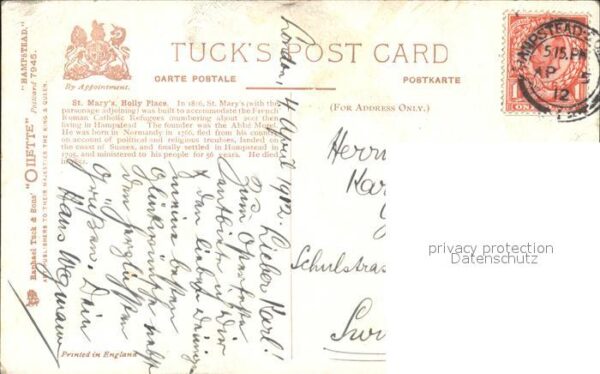 TUCK'S POST CARD
By Appointment.
CARTE POSTALE
POSTKARTE
St. Mary's, Holly Place. In 1816, St. Mary's (with the
parsonage adjoining) was built to accommodate the French
Roman Catholic Refugees (numbering about 200) then
living in Hampstead. The founder was the Abbé Morel.
He was born in Normandy in 1766, fled from his country
on account of political and religious troubles, landed on
the coast of Sussex, and finally settled in Hampstead in
and ministered to his people for 56 years. He died
(FOR ADDRESS ONLY.)
"HAMPSTEAD."
Postcard 7945.
Raphael Tuck & Sons' "OILETTE"
ART PUBLISHERS TO THEIR MAJESTIES THE KING & QUEEN
Printed in England
London, 4 April 1912.
Lieber Karl!
Zum Osterfeste
entbiete ich Dir
& den lieben Deinigen
meine besten
Glückwünsche nebst
den herzlichsten
Grüßen. Dein
Hans Wegmann
HAMPSTEAD
5.15 PM
AP 5
12
Herrn
Kar
Schulstras
privacy protection
Datenschutz